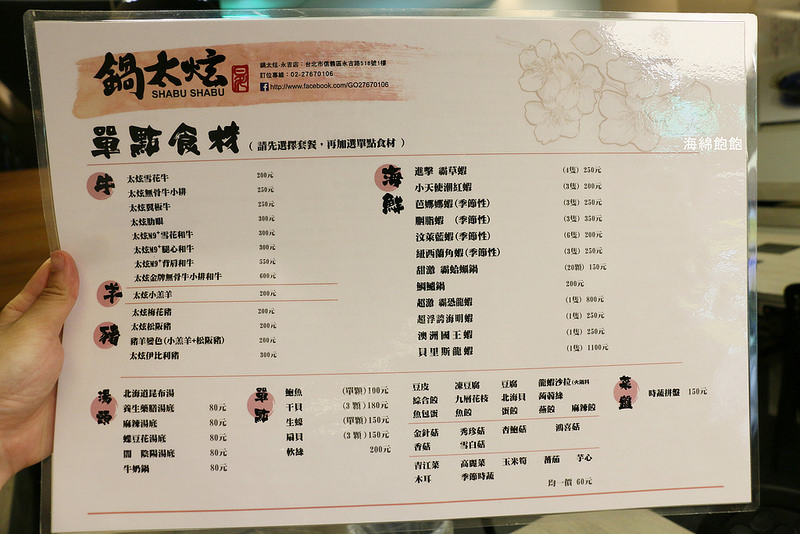 鍋太炫
SHABU SHABU
鍋太炫-永吉店：台北市信義區永吉路518號1樓
訂位專線：02-27670106
http://www.facebook.com/GO27670106
海綿飽飽
單點食材（請先選擇套餐，再加選單點食材）
牛
太炫雪花牛 200元
太炫無骨牛小排 250元
太炫翼板牛 250元
太炫肋眼 300元
太炫M9+雪花和牛 300元
太炫M9+腿心和牛 300元
太炫M9+背肩和牛 550元
太炫金牌無骨牛小排和牛 600元
羊
太炫小羔羊 200元
豬
太炫梅花豬 200元
太炫松阪豬 200元
豬羊變色(小羔羊+松阪豬) 200元
太炫伊比利豬 300元
海鮮
進擊 霸草蝦 (4隻) 250元
小天使潮紅蝦 (3隻) 200元
芭娜娜蝦(季節性) (3隻) 250元
胭脂蝦 (季節性) (3隻) 350元
汶萊藍蝦(季節性) (6隻) 200元
紐西蘭角蝦(季節性) (3隻) 250元
甜激 霸蛤蠣鍋 (20顆) 150元
鯛鱸鍋 200元
超激 霸恐龍蝦 (1隻) 800元
超浮誇海明蝦 (1隻) 250元
澳洲國王蝦 (1隻) 250元
貝里斯龍蝦 (1隻) 1100元
湯頭
北海道昆布湯
養生藥膳湯底 80元
麻辣湯底 80元
蝶豆花湯底 80元
鬧 陰陽湯底 80元
牛奶鍋 80元
單點
鮑魚 (單顆)100元
干貝 (3顆)180元
生蠔 (單顆)150元
扇貝 (3顆)150元
軟絲 200元
豆皮 凍豆腐 豆腐 龍蝦沙拉(火鍋料
綜合餃 九層花枝 北海貝 蒟蒻絲
魚包蛋 魚餃 蛋餃 燕餃 麻辣餃
金針菇 秀珍菇 杏鮑菇 鴻喜菇
香菇 雪白菇
青江菜 高麗菜 玉米筍 蕃茄 芋心
木耳 季節時蔬 均一價 60元
菜盤
時蔬拼盤 150元